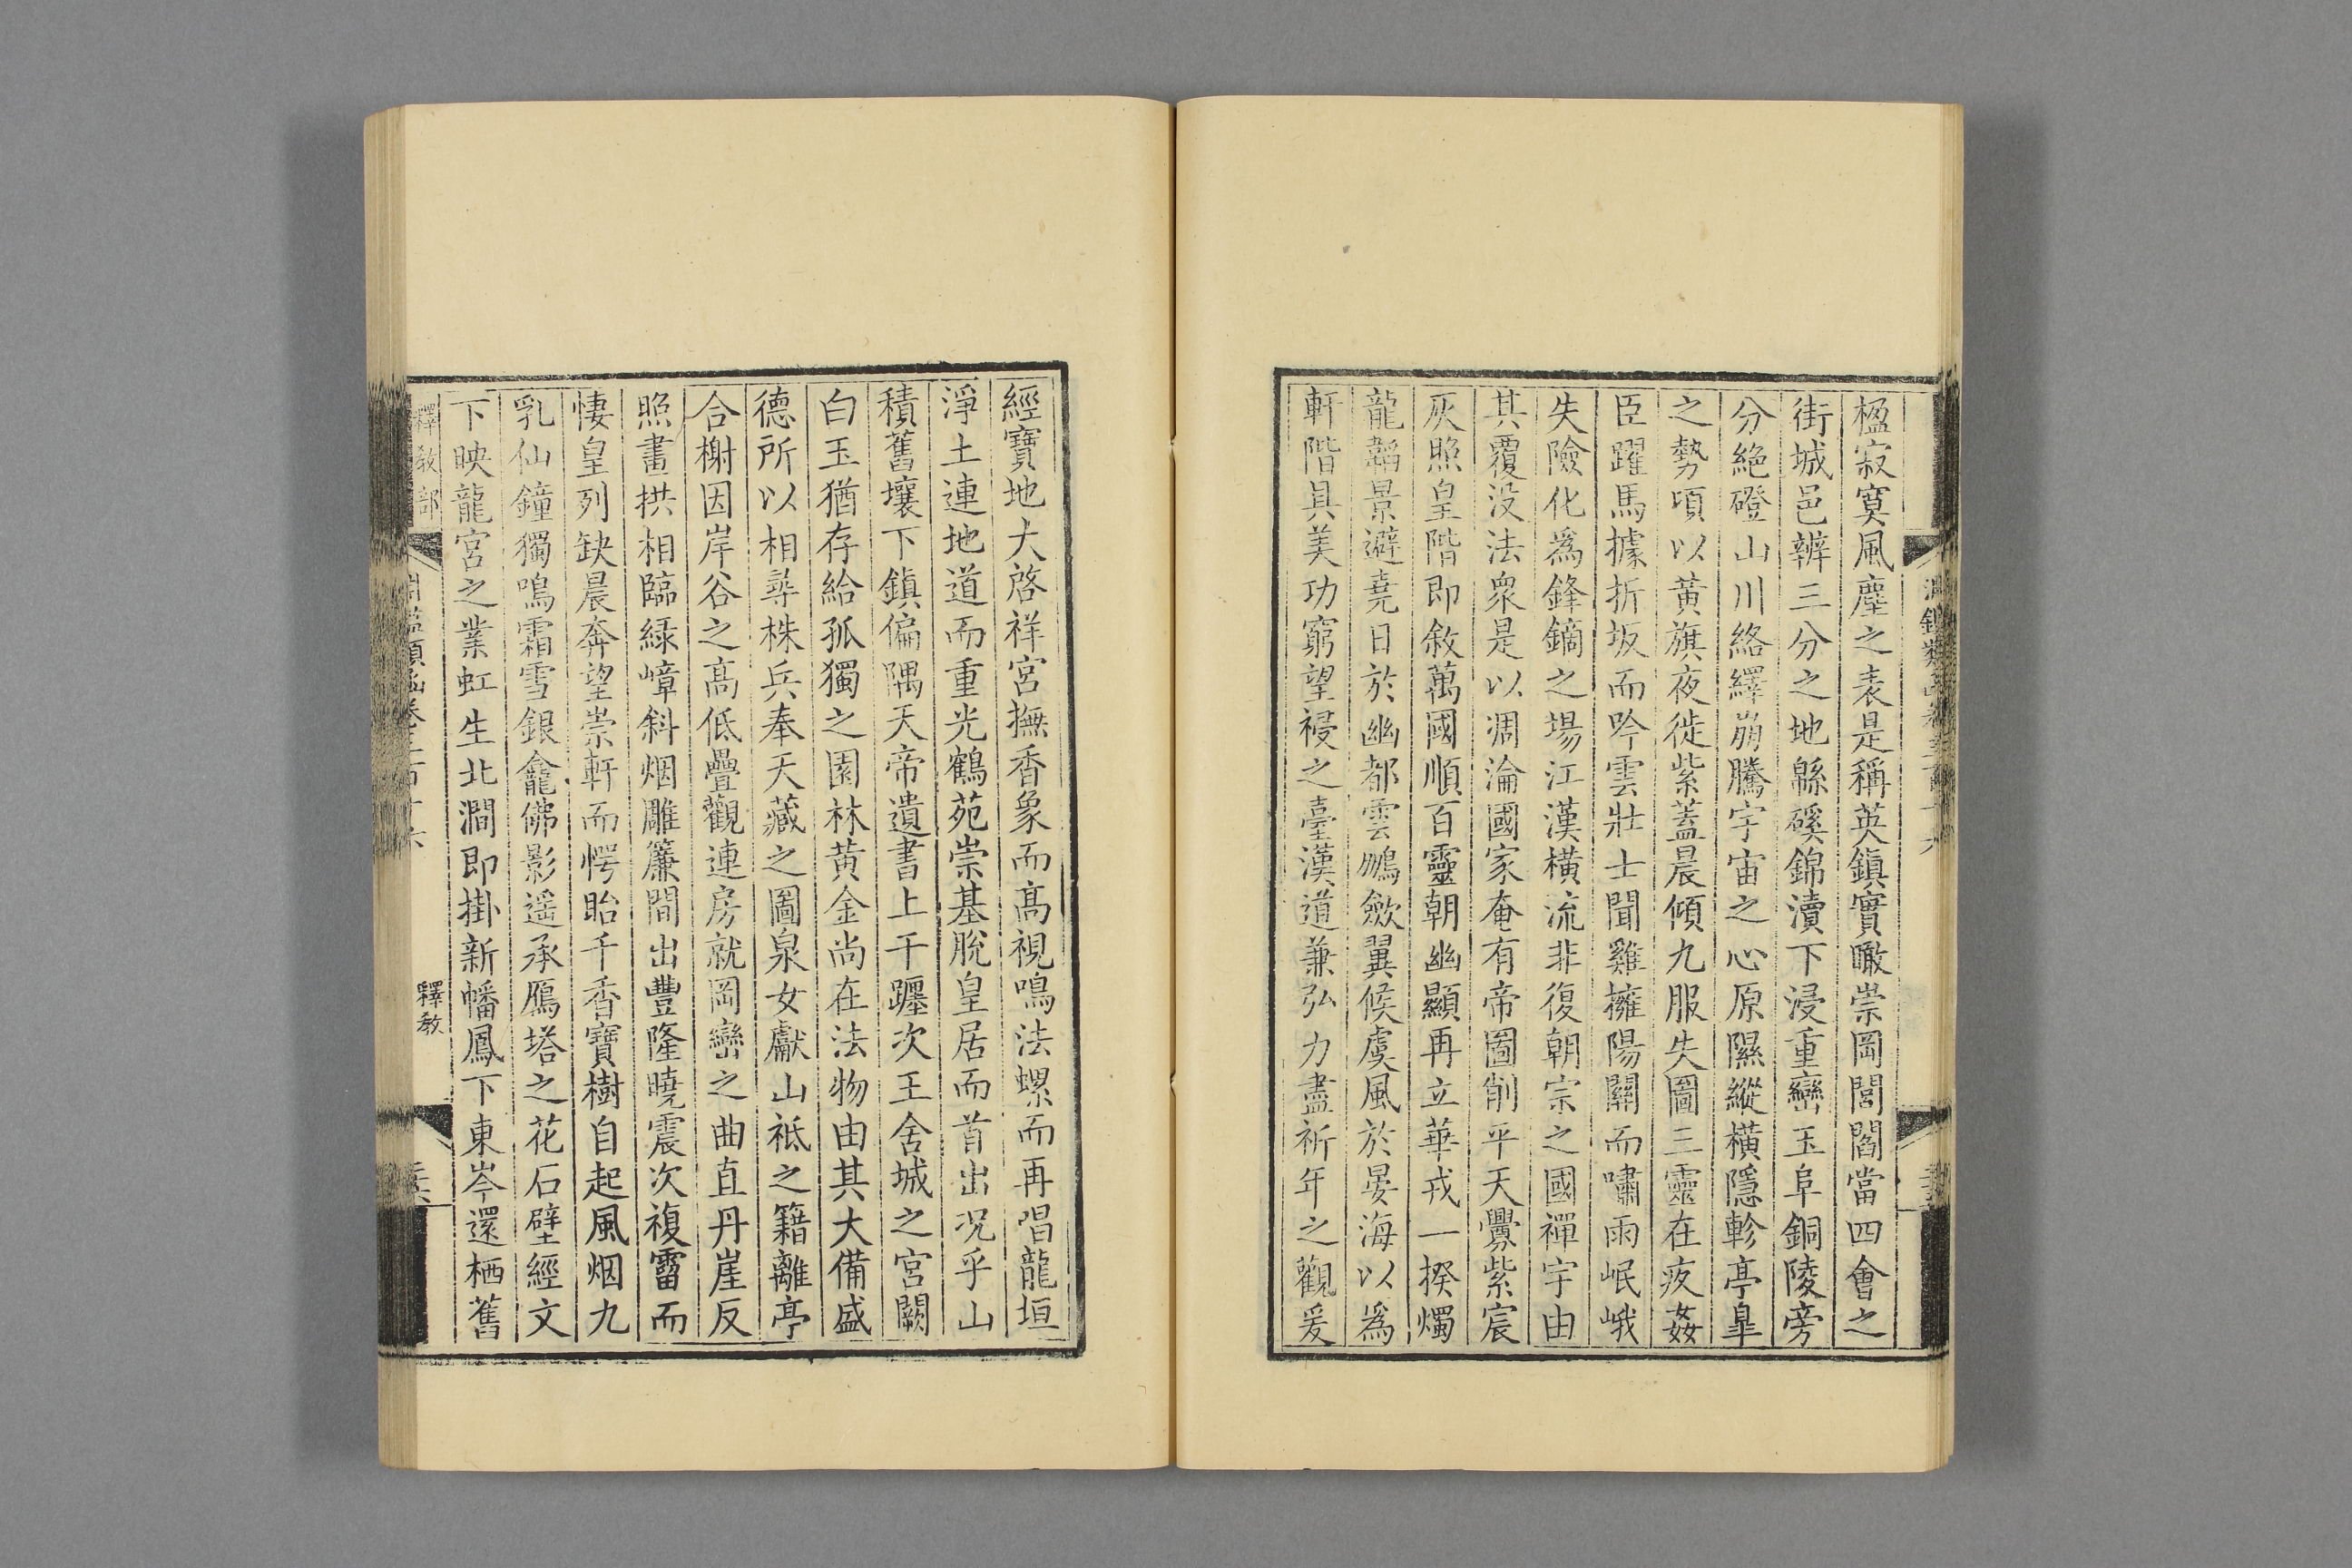 楹寂寞風塵之表是稱英鎮實瞰崇岡閭閻當四會之
街城邑辨三分之地緜磎錦瀆下浸重巒玉阜銅陵旁
分絶磴山川絡繹崩騰宇宙之心原隰縱橫隱軫亭皐
之勢頃以黃旗夜徙紫蓋晨傾九服失圖三靈在疚姦
臣躍馬據折坂而吟雲壯士聞雞擁陽關而嘯雨岷峨
失險化爲鋒鏑之場江漢橫流非復朝宗之國禪宇由
其覆没法衆是以凋淪國家奄有帝圖削平天釁紫宸
灰照皇階即敘萬國順百靈朝幽顯再立華戎一揆燭
龍韜景避堯日於幽都雲鵬歛翼候虞風於晏海以爲
軒階具美功窮望祲之臺漢道兼弘力盡祈年之觀爰
經寶地大啓祥宮撫香象而高視鳴法螺而再唱龍垣
淨土連地道而重光鶴苑崇基脫皇居而首出况乎山
積舊壤下鎮偏隅天帝遺書上干躔次王舍城之宮闕
白玉猶存給孤獨之園林黃金尚在法物由其大備盛
德所以相尋株兵奉天藏之圖泉女獻山祇之籍離亭
合榭因岸谷之高低疊觀連房就岡巒之曲直丹崖反
照畫拱相臨綠嶂斜烟雕簾間出豐隆曉震次複霤而
悽皇列缺晨奔望崇軒而愕眙千香寶樹自起風烟九
乳仙鐘獨鳴霜雪銀龕佛影遥承鴈塔之花石壁經文
下映龍宮之業虹生北澗即掛新幡鳳下東岑還栖舊
釋敎部
釋敎